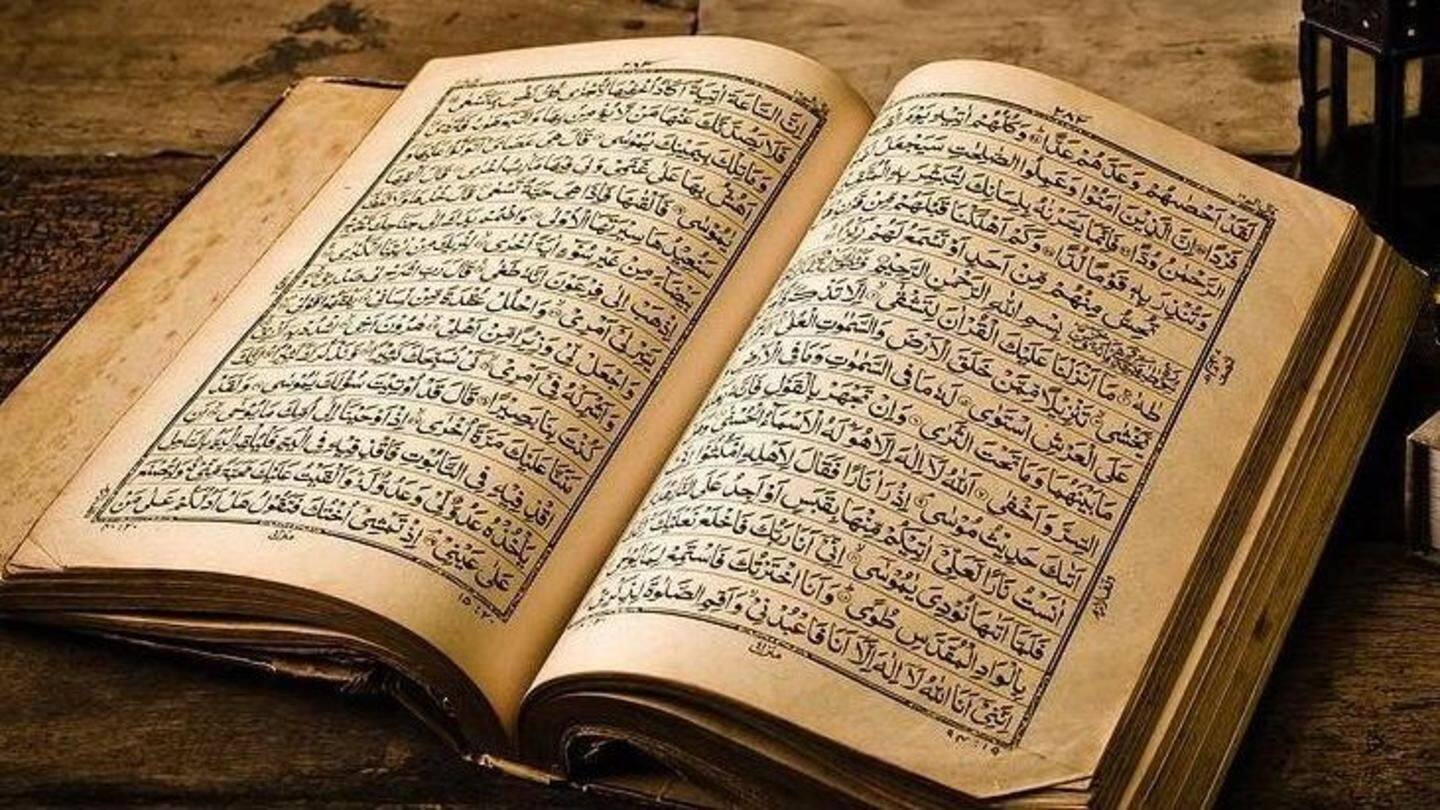 ۲۸۲
لَقَدْ اَحْصٰىهُمْ وَعَدَّهُمْ عَدًّا وَكُلُّهُمْ اٰتِيْهِ يَوْمَ
فَرْدًا اِنَّ الَّذِيْنَ اٰمَنُوْا وَعَمِلُوا الصّٰلِحٰتِ سَيَجْعَلُ
الرَّحْمٰنُ وُدًّا فَاِنَّمَا يَسَّرْنٰهُ بِلِسَانِكَ لِتُبَشِّرَ بِهِ
وَتُنْذِرَ بِهٖ قَوْمًا لُّدًّا وَكَمْ اَهْلَكْنَا قَبْلَهُمْ مِّنْ قَرْنٍ
تُحِسُّ مِنْهُمْ مِّنْ اَحَدٍ اَوْ تَسْمَعُ لَهُمْ رِكْزًا
بِسْمِ اللّٰهِ الرَّحْمٰنِ الرَّحِيْمِ
طٰهٰ مَا اَنْزَلْنَا عَلَيْكَ الْقُرْاٰنَ لِتَشْقٰى اِلَّا تَذْكِرَةً
يَّخْشٰى تَنْزِيْلًا مِّمَّنْ خَلَقَ الْاَرْضَ وَالسَّمٰوٰتِ الْعُلٰى
عَلَى الْعَرْشِ اسْتَوٰى لَهٗ مَا فِى السَّمٰوٰتِ وَمَا فِى الْاَرْضِ
مَا بَيْنَهُمَا وَمَا تَحْتَ الثَّرٰى وَاِنْ تَجْهَرْ بِالْقَوْلِ فَاِنَّهٗ
السِّرَّ وَاَخْفٰى اَللّٰهُ لَا اِلٰهَ اِلَّا هُوَ لَهُ الْاَسْمَاءُ الْحُسْنٰى
اَتٰىكَ حَدِيْثُ مُوْسٰى اِذْ رَاٰ نَارًا فَقَالَ لِاَهْلِهِ امْكُثُوْا
اٰنَسْتُ نَارًا لَّعَلِّىْ اٰتِيْكُمْ مِّنْهَا بِقَبَسٍ اَوْ اَجِدُ عَلَى النَّارِ
فَلَمَّا اَتٰىهَا نُوْدِىَ يٰمُوْسٰى اِنِّىْ اَنَا رَبُّكَ فَاخْلَعْ نَعْلَيْكَ
بِالْوَادِ الْمُقَدَّسِ طُوًى وَاَنَا اخْتَرْتُكَ فَاسْتَمِعْ لِمَا يُوْحٰى
اِنَّنِىْ اَنَا اللّٰهُ لَا اِلٰهَ اِلَّا اَنَا فَاعْبُدْنِىْ وَاَقِمِ الصَّلٰوةَ لِذِكْرِىْ
اِنَّ السَّاعَةَ اٰتِيَةٌ اَكَادُ اُخْفِيْهَا لِتُجْزٰى كُلُّ نَفْسٍ بِمَا تَسْعٰى
فَلَا يَصُدَّنَّكَ عَنْهَا مَنْ لَّا يُؤْمِنُ بِهَا وَاتَّبَعَ هَوٰىهُ فَتَرْدٰى
وَمَا تِلْكَ بِيَمِيْنِكَ يٰمُوْسٰى قَالَ هِىَ عَصَاىَ
اَهُشُّ بِهَا عَلٰى غَنَمِىْ وَلِىَ فِيْهَا مَاٰرِبُ اُخْرٰى قَالَ اَلْقِهَا
يٰمُوْسٰى فَاَلْقٰىهَا فَاِذَا هِىَ حَيَّةٌ تَسْعٰى قَالَ خُذْهَا وَلَا تَخَفْ
سَنُعِيْدُهَا سِيْرَتَهَا الْاُوْلٰى وَاضْمُمْ يَدَكَ اِلٰى جَنَاحِكَ تَخْرُجْ
بَيْضَاءَ مِنْ غَيْرِ سُوْءٍ اٰيَةً اُخْرٰى لِنُرِيَكَ مِنْ اٰيٰتِنَا الْكُبْرٰى
اِذْهَبْ اِلٰى فِرْعَوْنَ اِنَّهٗ طَغٰى قَالَ رَبِّ اشْرَحْ لِىْ صَدْرِىْ وَ
يَسِّرْ لِىْ اَمْرِىْ وَاحْلُلْ عُقْدَةً مِّنْ لِّسَانِىْ يَفْقَهُوْا قَوْلِىْ
وَاجْعَلْ لِّىْ وَزِيْرًا مِّنْ اَهْلِىْ هٰرُوْنَ اَخِى اشْدُدْ بِهٖ اَزْرِىْ
وَاَشْرِكْهُ فِىْ اَمْرِىْ كَىْ نُسَبِّحَكَ كَثِيْرًا وَّنَذْكُرَكَ كَثِيْرًا اِنَّكَ
كُنْتَ بِنَا بَصِيْرًا قَالَ قَدْ اُوْتِيْتَ سُؤْلَكَ يٰمُوْسٰى وَلَقَدْ
مَنَنَّا عَلَيْكَ مَرَّةً اُخْرٰى اِذْ اَوْحَيْنَا اِلٰى اُمِّكَ مَا يُوْحٰى اَنِ
اقْذِفِيْهِ فِى التَّابُوْتِ فَاقْذِفِيْهِ فِى الْيَمِّ فَلْيُلْقِهِ الْيَمُّ بِالسَّاحِلِ
يَاْخُذْهُ عَدُوٌّ لِّىْ وَعَدُوٌّ لَّهٗ وَاَلْقَيْتُ عَلَيْكَ مَحَبَّةً مِّنِّىْ وَلِتُصْنَعَ
عَلٰى عَيْنِىْ اِذْ تَمْشِىْ اُخْتُكَ فَتَقُوْلُ هَلْ اَدُلُّكُمْ عَلٰى مَنْ